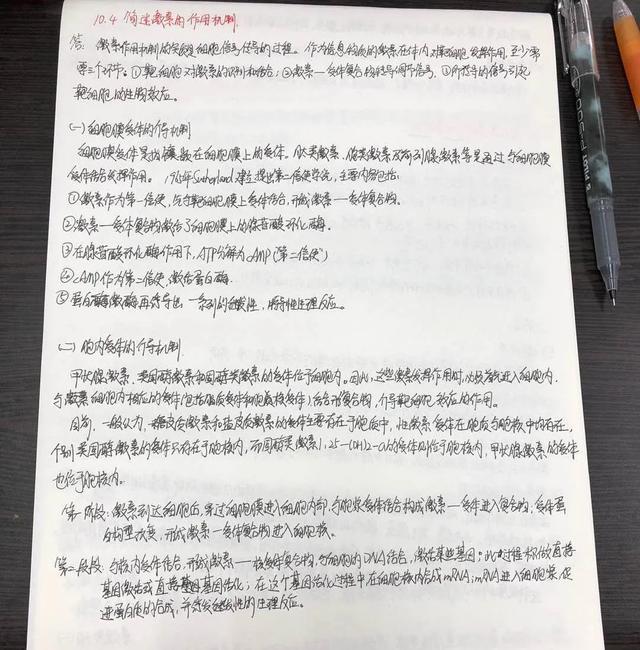 10.4 简述激素的作用机制
答: 激素作用机制的实质是细胞信号传导的过程。作为信息物质的激素在体内对靶细胞发挥作用,至少需
要三个环节:①靶细胞对激素的识别和结合;②激素—受体复合物转导调节信号,③所转导的信号引起
靶细胞的生物效应。
(一)细胞膜受体介导机制
细胞膜受体是指镶嵌在细胞膜上的受体。肽类激素、胺类激素及前列腺激素等是通过与细胞膜
受体结合发挥作用。1965年Sutherland建立提出第二信使学说,主要内容包括:
①激素作为第一信使,与靶细胞膜上受体结合,形成激素—受体复合物。
②激素—受体复合物激活了细胞膜上的腺苷酸环化酶。
③在腺苷酸环化酶作用下,ATP分解为cAMP("第二信使")
④cAMP作为第二信使,激活蛋白酶。
⑤蛋白酶激酶再诱导出一系列的 性,特异性生理反应。
(二)胞内受体的介导机制
甲状腺激素、类固醇激素和固醇类激素的受体位于细胞内。因此,这些激素发挥作用时,必须首先进入细胞内,
与激素细胞内相应的受体(包括胞质受体和胞核受体)结合形成复合物,介导靶细胞效应的作用。
目前,一般认为,糖皮质激素和盐皮质激素的受体主要存在于胞质中,性激素受体在胞质与胞核中均存在,
个别类固醇激素的受体只存在于胞核内,而固醇类激素1,25-(OH)2-D3的受体则位于胞核内,甲状腺激素的受体
也位于胞核内。
第一阶段:激素到达细胞后,穿过细胞膜进入细胞内部,与胞浆受体结合构成激素—受体 复合物;受体蛋
白构型改变,形成激素—受体复合物进入细胞核。
第二阶段:与核内受体结合,形成激素—核受体复合物,与细胞的DNA结合,激活某些基因;此过程称做直接
基因激活或直接基因活化;在这个基因活化过程中,在细胞核内合成mRNA;mRNA进入细胞浆,促
进蛋白质的合成,并引发 性的生理反应。